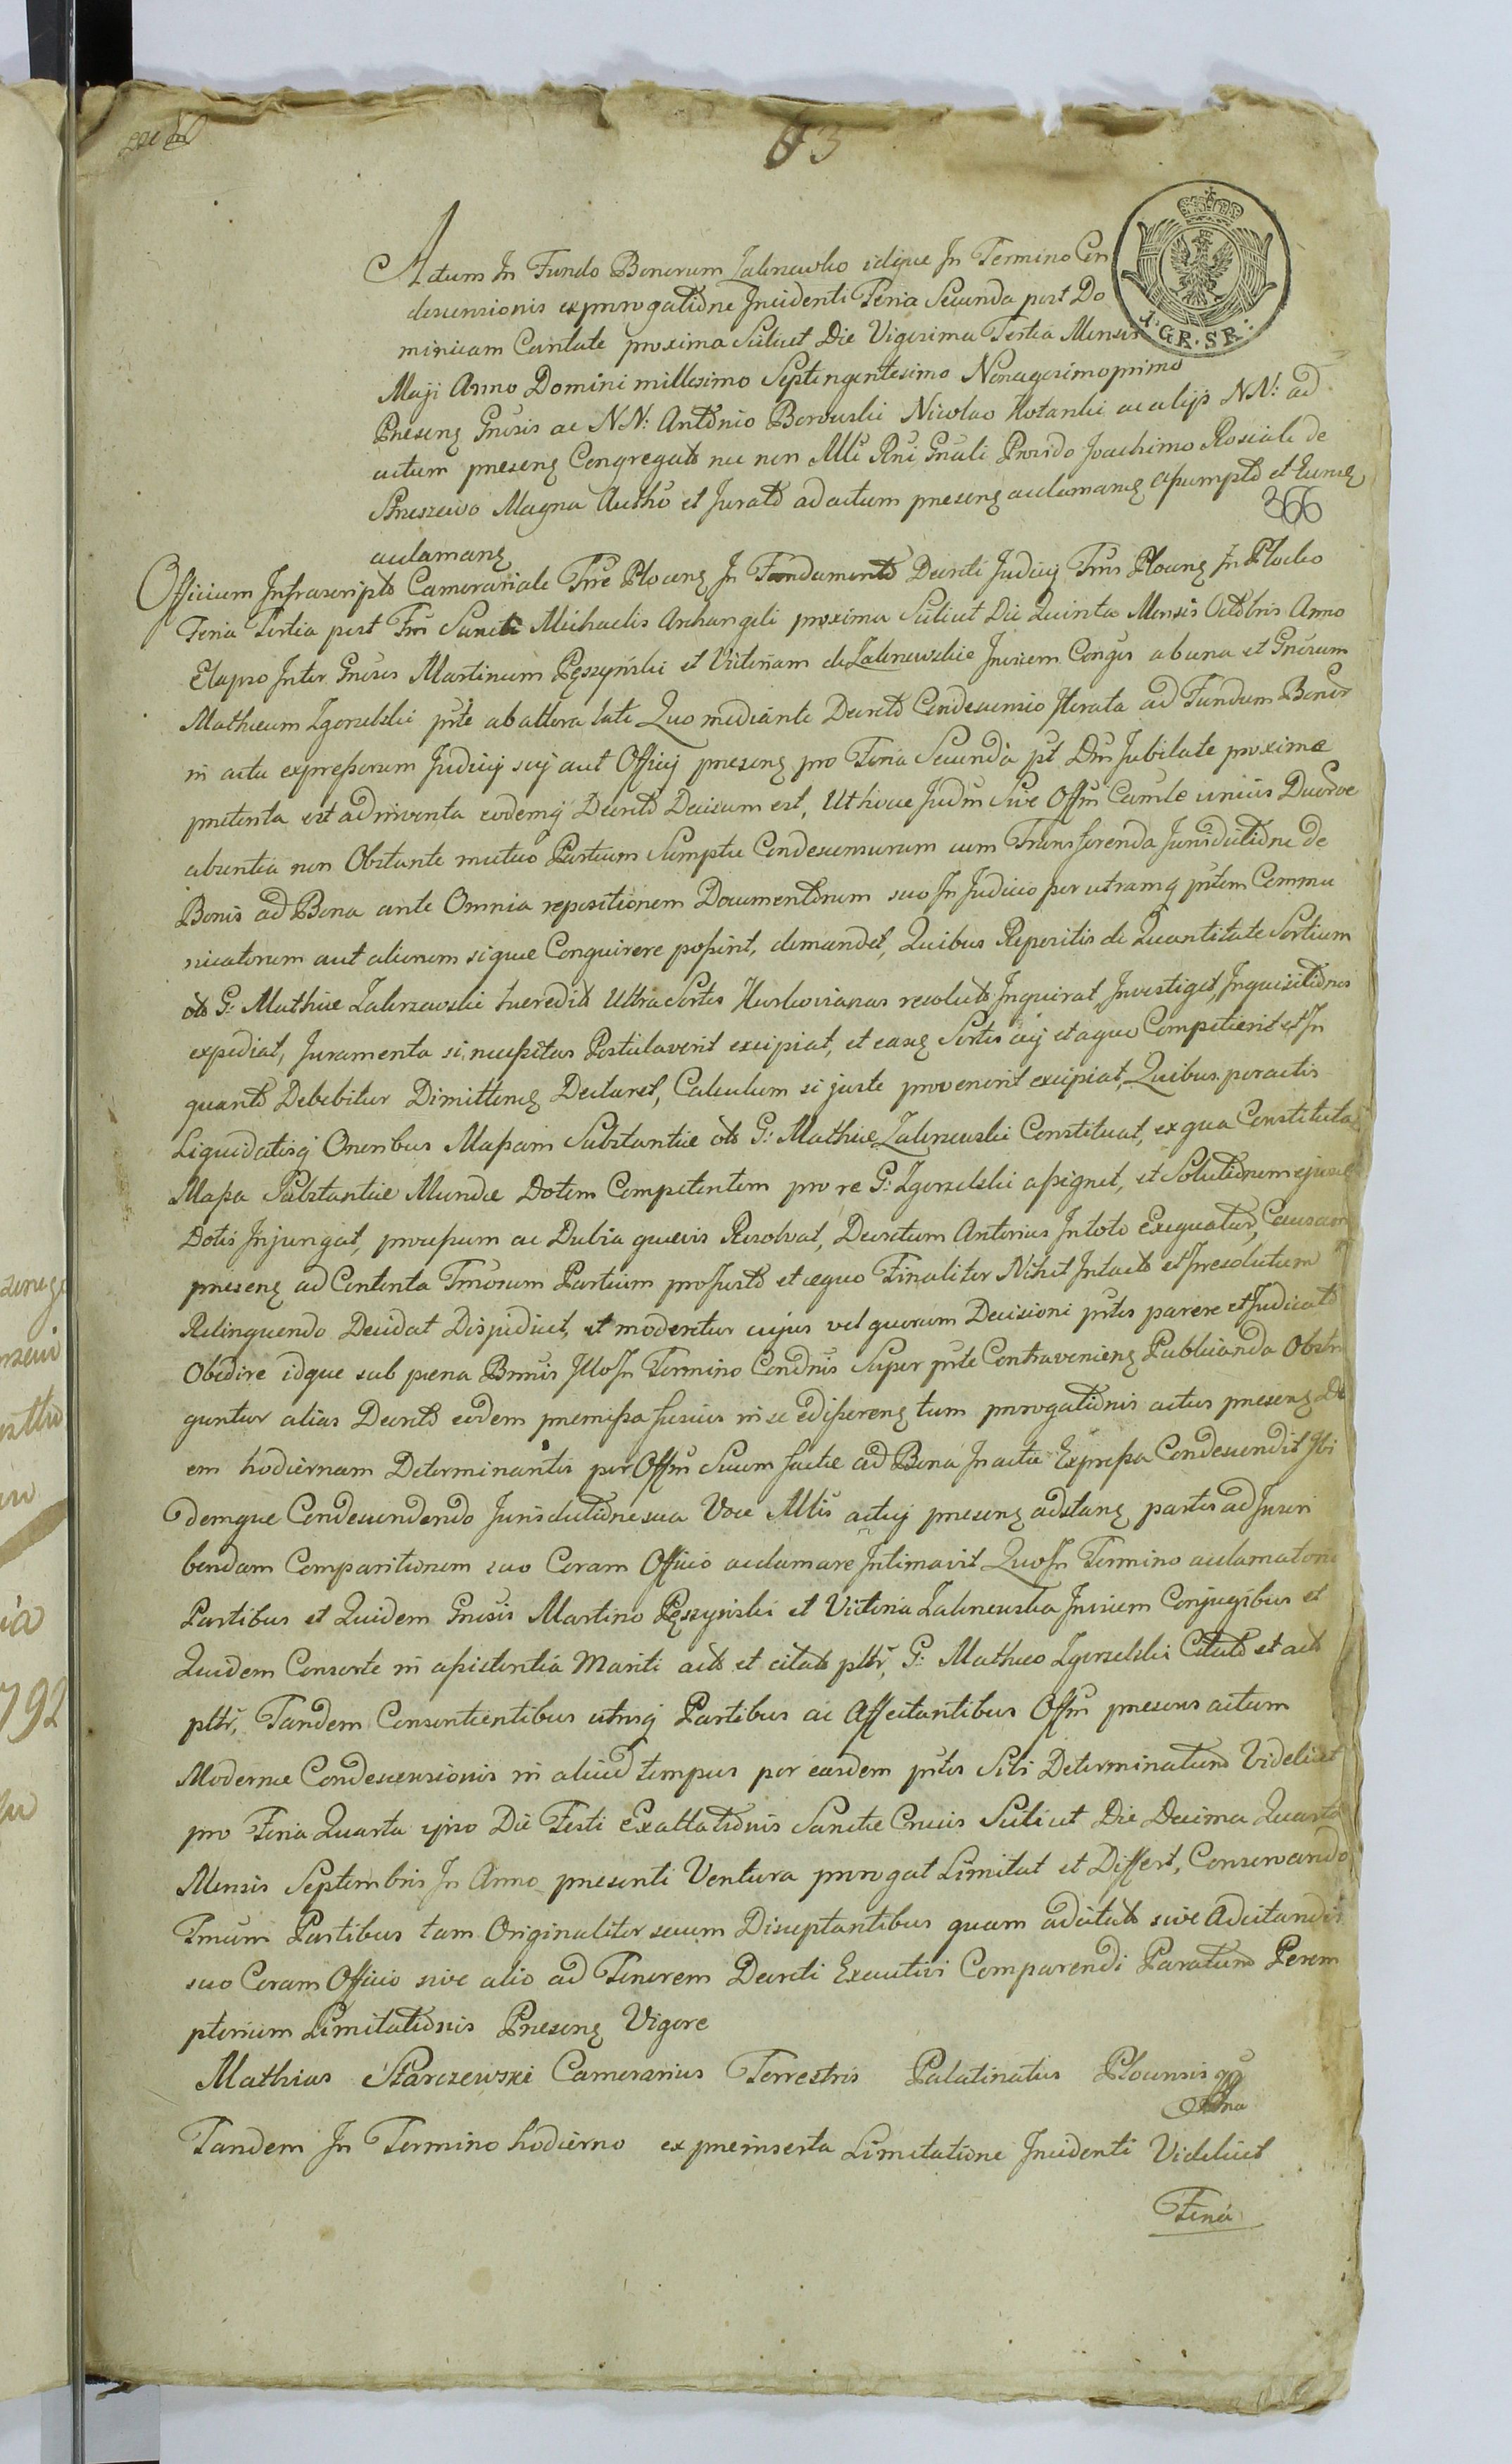 63
Actum In Fundo Bonorum Zalszewko idque In Termino Con
descensionis ex prorogatione Incidenti Feria Secunda post Do
minicam Cantate proxima Scilicet Die Vigesima Tertia Mensis
Maji Anno Domini millesimo Septingentesimo Nonagesimoprimo
1. GR. SR:
Presenq Gnosis ac NN: Antonio Borowski Nicolao ac alijs NN: ad
actum presenq Congregats nec non Mlli Rni Gnali Provido Joachimo Rosciak de
Magna Autho et Jurato ad actum presenq acclamanq assumpto et Eumq
366
acclamanq
Officium Infrascripto Camerariale Trre Plocenq In Fundamento Decreti Judicij Trris Plocenq In Plocko
Feria Tertia post Fm Sancti Michaelis Archangeli proxima Scilicet Die Quinta Mensis Octobris Anno
Elapso Inter Gnosos Martinum Pęszyński et Victoriam de Zalszewskie Invicem Conges ab una et Gnosum
Matheum Zgorzelski pte ab altera lati Quo mediante Decreto Condescensio Iterata ad Fundum Bonor
in actu expressorum Judicij scij aut Officij presenq pro Feria Secunda pt Dm Jubilate proxima
pretenta est adinventa eodemq Decreto Decisum est, Ut hocce Judm Sive Offm Camle unius Duorve
absentia non Obstante mutuo Partium Sumptu Condescensurum cum Transferenda Jurisdictione de
Bonis ad Bona ante Omnia repositionem Documentorum suo In Judicio per utramq ptem Commu
nicatorum aut aliorum si quae Conquirere possint, demandet, Quibus Repositis de Quantitate Sortium
ots G: Mathiae Zalszewskie haeredits Ultra Sortes resoluts Inquirat, Investiget, Inquisitiones
expediat, Juramenta si necessitas Postulaverit excipiat, et easq Sortes cuj et a quo Competierit et In
quanto Debebitur Dimittenq Declaret, Calculum si juste provenerit excipiat, Quibus peractis
Liquidatisq Oneribus Massam Substantiae ots G: Mathiae Zalszewskie Constituat, ex qua Constituta
Massa Substantiae Mundae Dotem Competentem pro re G: Zgorzelski assignet, et Solutionem ejusce
Dotis Injungat, processum ac Dubia quaevis Resolvat, Decretum Anterius In toto Exequatur, Causam
presenq ad Contenta Tmorum Partium pro Justo et aequo Finaliter Nihil Intacts et Irresolutum
Relinquendo Decidat Disjudicet, et moderetur cujus vel quorum Decisioni ptes parere et Judicato
Obedire idque sub paena Bnnis Illo In Termino Condnis Super pte Contravenienq Publicanda Obstri
guntur alias Decreto eodem premissa fusius in se edisserenq tum prorogationis actus presenq Di
em hodiernam Determinantis per Offm Suum factae ad Bona In actu Expressa Condescendit Ibi
demque Condescendendo Jurisdictione sua Voce Mlis actuj presenq adstanq partes ad Inscri
bendam Comparitionem suo Coram Officio acclamare Intimavit Quo In Termino acclamatoria
Partibus et Quidem Gnosis Martino Pęszyński et Victoria Zalszewska Invicem Conjugibus et
Quidem Consorte in assistentia Mariti acts et citats pltr, G: Matheo Zgorzelski Citato et acto
pltr, Tandem Consentientibus utrisq Partibus ac Affectantibus Offm presens actum
Modernae Condescensionis in aliud tempus per easdem ptes Sibi Determinatum Videlicet
pro Feria Quarta ipso Die Festi Exaltationis Sanctae Crucis Scilicet Die Decima Quarta
Mensis Septembris In Anno presenti Ventura prorogat Limitat et Differt, Conservando
Tmum Partibus tam Originaliter secum Disceptantibus quam adcitats sive Adcitandis
suo Coram Officio sive alio ad Tenorem Decreti Executivi Comparendi Paratum Perem
ptorium Limitationis Presenq Vigore
Mathias Starczewski Camerarius Terrestris Palatinatus Plocensis
Tandem In Termino hodierno ex preinserta Limitatione Incidenti Videlicet
Feria